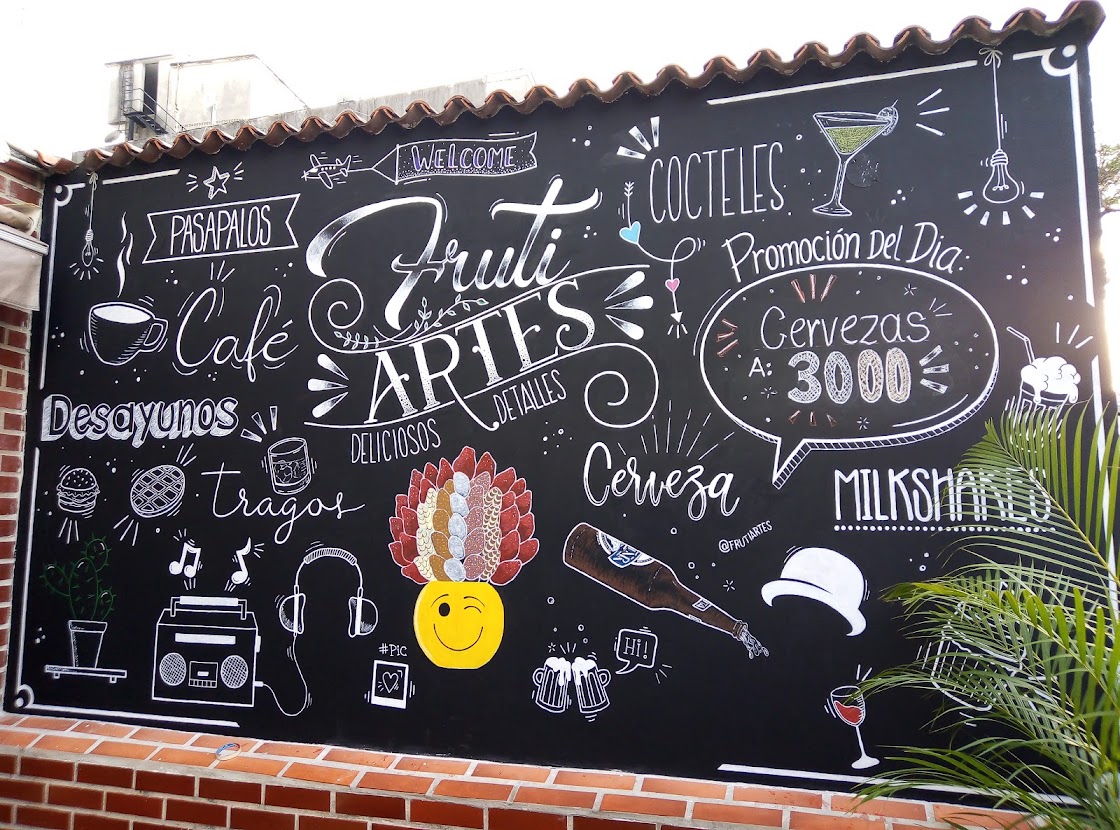 WELCOME
PASAPALOS
COCTELES
Fruti
ARTES
DELICIOSOS DETALLES
Café
Promoción Del Dia:
Cervezas
A: 3000
Desayunos
Tragos
Cerveza
MILKSHAKES
@FRUTIARTES
Hi!
#PIC